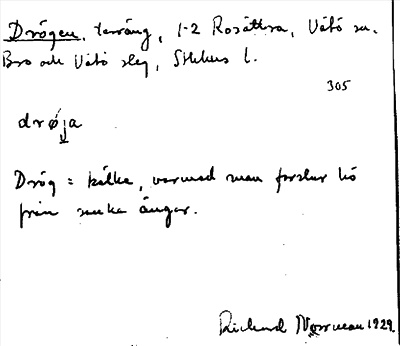 Drögen, terräng, 1-2 Rosättra, Vätö sn.
Bro och Vätö slg, Sthlms l.
305
drøja
Drög = kälke, varmed man forslar hö
från sanka ängar.
Richard Norrman 1929.